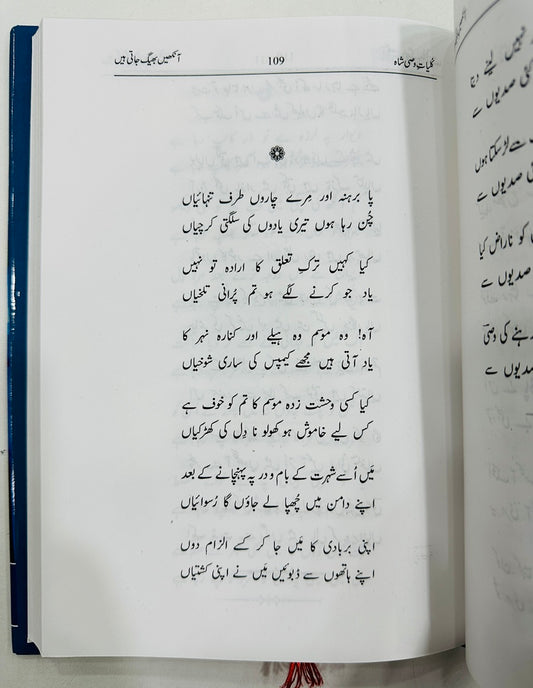 کلیاتِ وصی شاہ 109 آنکھیں بھیگ جاتی ہیں
پا برہنہ اور مِرے چاروں طرف تنہائیاں
چُن رہا ہوں تیری یادوں کی سلگتی کرچیاں
کیا کہیں ترکِ تعلق کا ارادہ تو نہیں
یاد جو کرنے لگے ہو تم پُرانی تلخیاں
آہ! وہ موسم وہ بیلے اور کنارہ نہر کا
یاد آتی ہیں مجھے کیمپس کی ساری شوخیاں
کیا کسی وحشت زدہ موسم کا تم کو خوف ہے
کس لیے خاموش ہو کھولو نا دِل کی کھڑکیاں
مَیں اُسے شہرت کے بام و در پہ پہنچانے کے بعد
اپنے دامن میں چُھپا لے جاؤں گا رُسوائیاں
اپنی بربادی کا مَیں جا کر کسے الزام دوں
اپنے ہاتھوں سے ڈبوئیں مَیں نے اپنی کشتیاں
نہیں لینے دیتا
صدیوں سے
سے لڑ سکتا ہوں
صدیوں سے
کو ناراض کیا
صدیوں سے
رہنے کی وصیؔ
صدیوں سے